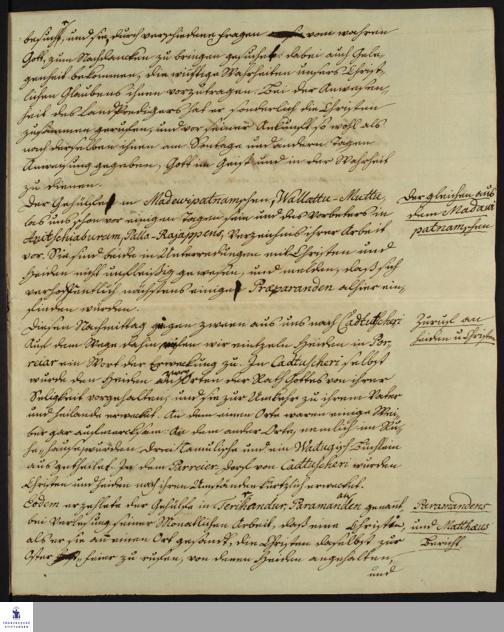 besucht, und sie durch verschiedene Fragen vom wahren
Gott, zum Nachdencken zu bringen gesuchet dabei auch Gele-
genheit bekommen, die wichtige Wahrheiten unsers Christ-
lichen Glaubens ihnen vorzutragen. Bei der Anwesen-
heit des Landpredigers hat er sonderlich die Christen
zusammen gerufen, und vor seiner Ankunft so wohl als
nach derselben ihnen am Sontage und andern Tagen
Anweisung gegeben, Gott im Geist und in der Wahrheit
zu dienen.
Der Gehülfe in Madewipatnamschen, Wallattu-Muttu,
las uns schon vor einigen Tagen sein und des Vorbeters in
Rajappens, Verzeichniß ihrer Arbeit
vor. Sie sind beide in Unterredungen mit Christen und
Heiden nicht unfleißig gewesen, und melden, daß sich
verhoffentlich nächstens einige Präparanden alhier ein-
finden würden.
Diesen Nachmittag gingen zween aus uns nach Cadtutscheri
Auf dem Wege dahin wir eintzeln Heiden in Por-
reiar ein Wort der Erweckung zu. In Cadtutscheri selbst
wurde den Heiden an Orten der Rath Gottes von ihrer
Seligkeit vorgehalten, und sie zur Umkehr zu ihrem Vater
und Heilande erwecket. An dem einen Orte waren einige Wei-
ber gar aufmercksam. An dem andern Orte, nemlich im Ru-
hehause wurden drei Tamulische und ein Wadugisch Büchlein
ausgetheilet. In dem Parreier-dorf von Cadtutscheri wurden
Christen und Heiden nach ihren Umständen kürtzlich erwecket.
Eodem erzehlete der Gehülfe in Terikandur, Paramanden genant,
bei Verlesung seiner Monatlichen Arbeit, daß eine Christin,
als er sie an einen Ort gesandt, die Christen daselbst zur
Oster feier zu rufen, von denen Heiden angehalten,
und
Dergleichen aus
dem Madewi
patnamschen
Zuruf an
Heiden u. Christen
Paramandens
und Matthäus
Bericht
FRANCKESCHE
STIFTUNGEN